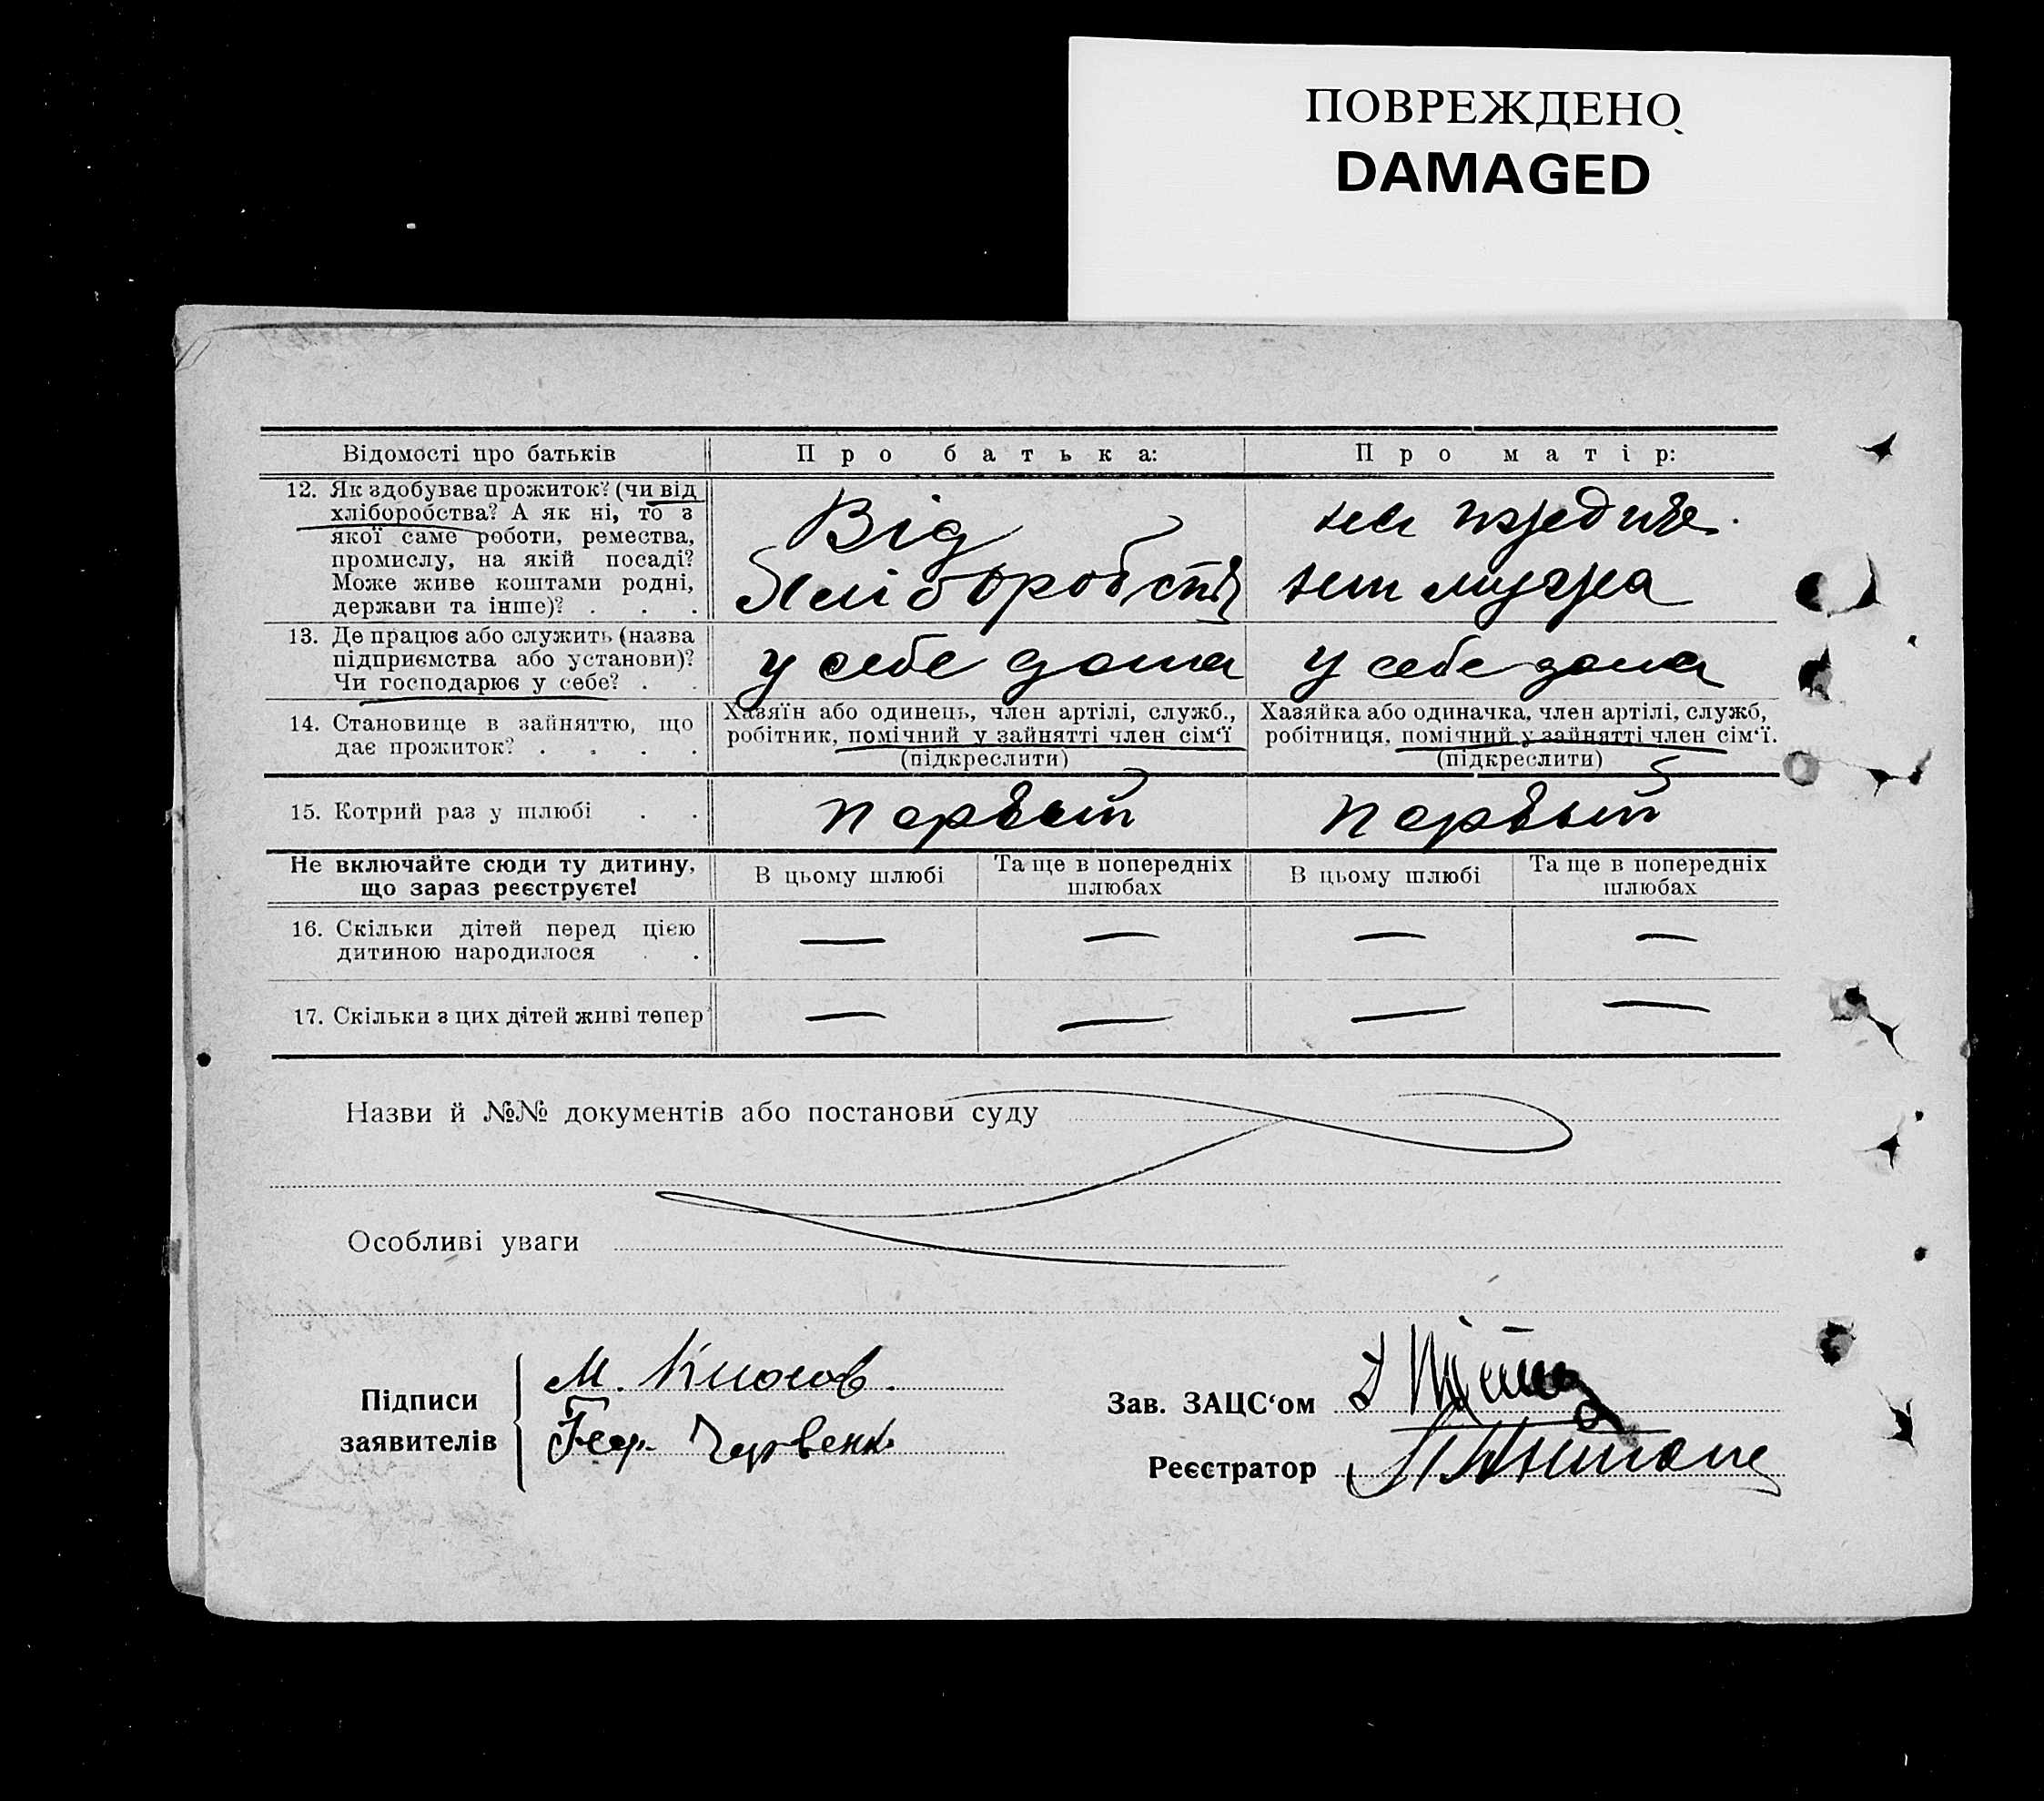 ПОВРЕЖДЕНО
DAMAGED
Відомості про батьків
Про батька:
Про матір:
12. Як здобуває прожиток? (чи від
хліборобства? А як ні, то з
якої саме роботи, ремества,
промислу, на якій посаді?
Може живе коштами родні,
держави та інше)? . . .
Від
Хліборобств
на
мужа
13. Де працює або служить (назва
підприємства або установи)?
Чи господарює у себе? . .
у себе дома
у себе дома
14. Становище в зайняттю, що
дає прожиток? . . . .
Хазяїн або одинець, член артілі, служб.,
робітник, помічний у зайнятті член сім‘ї
(підкреслити)
Хазяйка або одиначка, член артілі, служб,
робітниця, помічний у зайнятті член сім‘ї.
(підкреслити)
15. Котрий раз у шлюбі . .
первый
первый
Не включайте сюди ту дитину,
що зараз реєструєте!
В цьому шлюбі
Та ще в попередніх
шлюбах
В цьому шлюбі
Та ще в попередніх
шлюбах
16. Скільки дітей перед цією
дитиною народилося . .
— — — —
17. Скільки з цих дітей живі тепер
— — — —
Назви й №№ документів або постанови суду
Особливі уваги
Підписи
заявителів
М.
Зав. ЗАЦС‘ом
Реєстратор